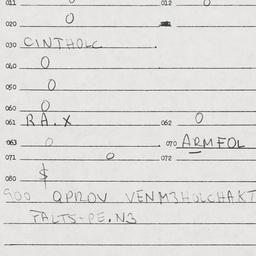 011 0 012 0
020 0
030 CINTHOLC
040 0
050 0
060 0
061 RA.X 062 0
063 0 070 ARMFOL
071 0 072
080 $
900 QPROV VENM3HOLCHAKT
7ALTS-PE.N3